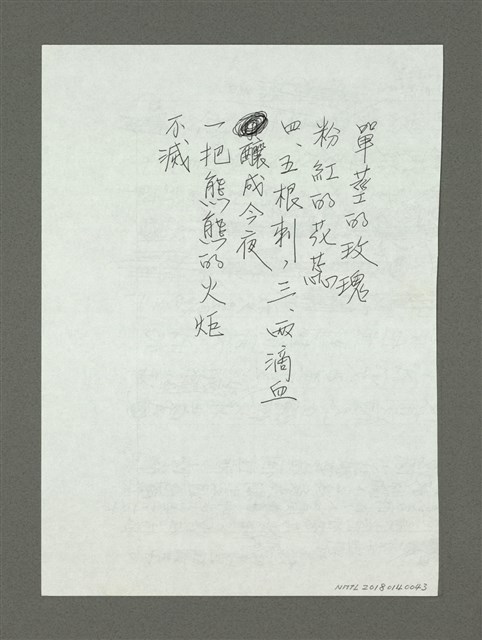 單莖的玫瑰
粉紅的花蕊
四、五根刺，三、兩滴血
釀成今夜
一把熊熊的火炬
不滅
NMTL 20180140043